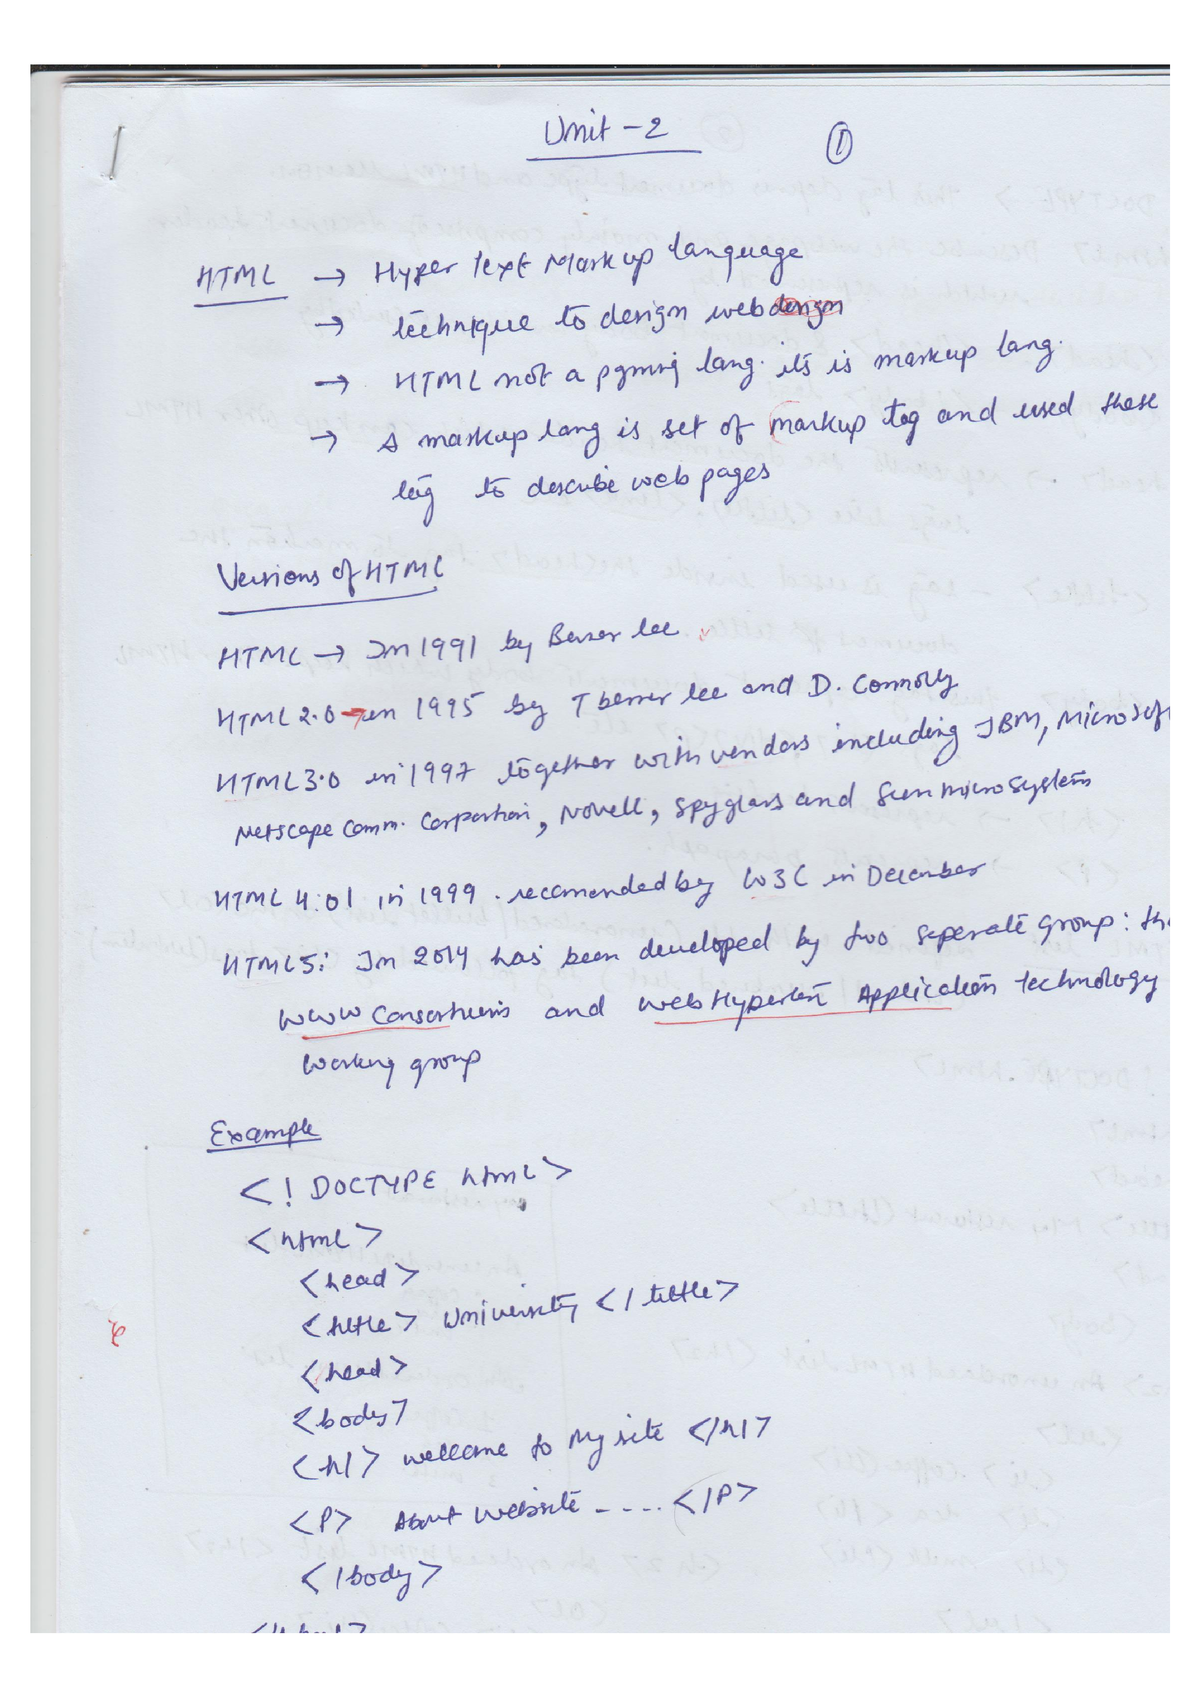 Unit - 2
1
HTML → Hyper Text Markup Language
→ technique to design web design
→ HTML not a pgmnj lang. its is markup lang.
→ A markup lang is set of markup tag and used these
tag to describe web pages
Versions of HTML
HTML → In 1991 by Berner lee
HTML 2.0 → in 1995 by T berner lee and D. Connolly
HTML 3.0 in 1997 together with vendors including IBM, Microsoft
Netscape Comm. Corportion, Novell, Spyglass and Sun micro system
HTML 4:01 in 1999. recomended by W3C in December
HTML5: In 2014 has been developed by two seperate group: the
WWW Consortium and Web Hypertext Application technology
Working group
Example
<! DOCTYPE html>
<html>
<head>
<tittle> University </tittle>
<head>
<body>
<h1> wellcome to My site </h1>
<P> About website ---- </P>
</body>
</html>